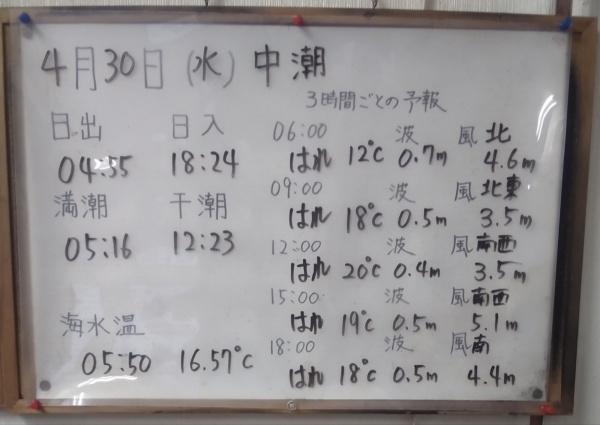 4月30日(水)中潮
3時間ごとの予報
日出 日入
04:55 18:24
満潮 干潮
05:16 12:23
海水温
05:50 16.57℃
06:00 波 風 北
はれ 12℃ 0.7m 4.6m
09:00 波 風 北東
はれ 18℃ 0.5m 3.5m
12:00 波 風 南西
はれ 20℃ 0.4m 3.5m
15:00 波 風 南西
はれ 19℃ 0.5m 5.1m
18:00 波 風 南
はれ 18℃ 0.5m 4.4m